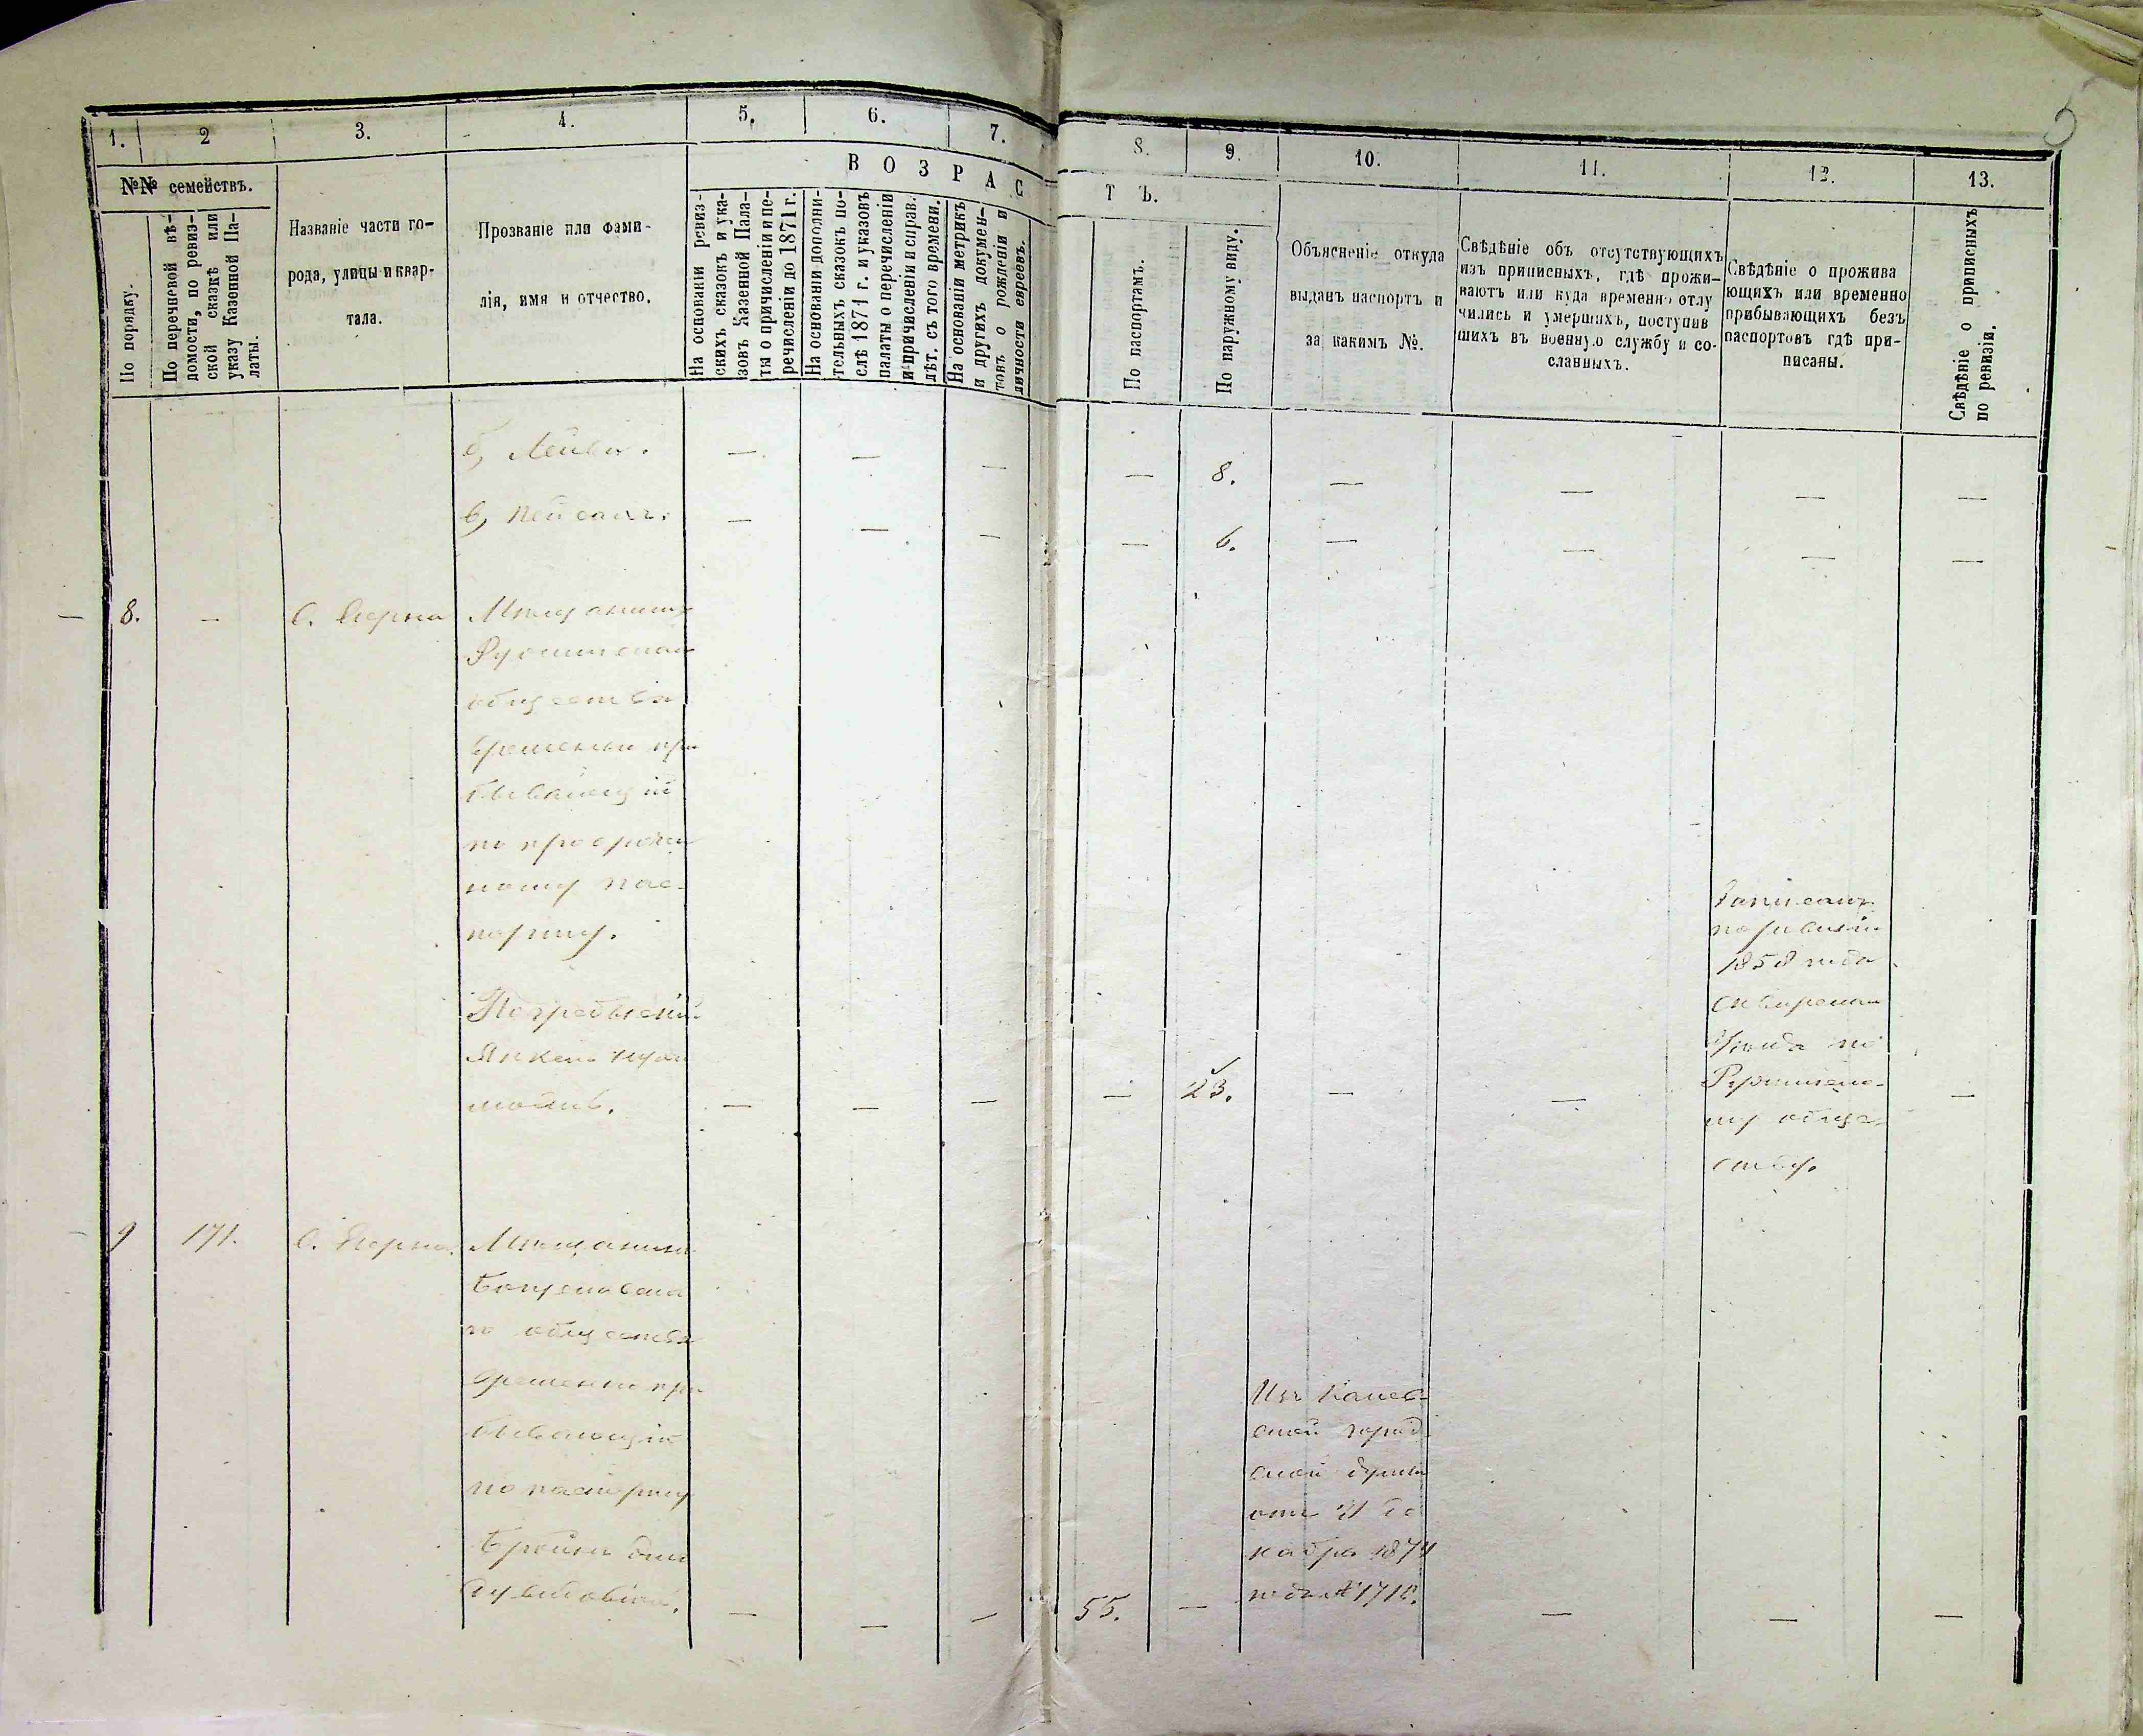 5
1.
2
3.
4.
5.
6.
7.
8.
9.
10.
11.
12.
13.
№№ семействъ.
ВОЗРАС
ТЪ.
По порядку.
По перечневой вѣ-
домости, по ревиз-
ской сказкѣ или
указу Казенной Па-
латы.
Названіе части го-
рода, улицы и квар-
тала.
Прозваніе или фами-
лія, имя и отчество.
На основаніи ревиз-
скихъ сказокъ и ука-
зовъ Казенной Пала-
ты о причисленіи и пе-
речисленіи до 1871 г.
На основаніи дополни-
тельныхъ сказокъ по-
слѣ 1871 г. и указовъ
палаты о перечисленіи
и причисленіи и справ.
лѣт. съ того времени.
На основаніи метрикъ
и другихъ докумен-
товъ о рожденіи и
личности евреевъ.
По паспортамъ.
По наружному виду.
Объясненіе откуда
выданъ паспортъ и
за какимъ №.
Свѣдѣніе объ отсутствующихъ
изъ приписныхъ, гдѣ прожи-
ваютъ или куда временно отлу
чились и умершихъ, поступив
шихъ въ военную службу и со-
сланныхъ.
Свѣдѣніе о прожива
ющихъ или временно
прибывающихъ безъ
паспортовъ гдѣ при-
писаны.
Свѣдѣніе о приписныхъ
по ревизіи.
б, Лейба. — — — — 8. — — — —
в, Пейсахъ. — — — — 6. — — — —
— 8. — Мѣщанинъ
общества
временно при
бывающій
по просрочен
ному пас-
порту.
Погребыскій
Янкель
— — — — 23. — — —
Записанъ
по ревизіи
1858 года
Сквирскаго
уѣзда по
обще-
ству.
9 171. Мѣщанинъ
го общества
временно при
бывающій
по паспорту
55. — — — —
Изъ Канев-
ской город
ской думы
отъ 31 де
кабря 1874
года №